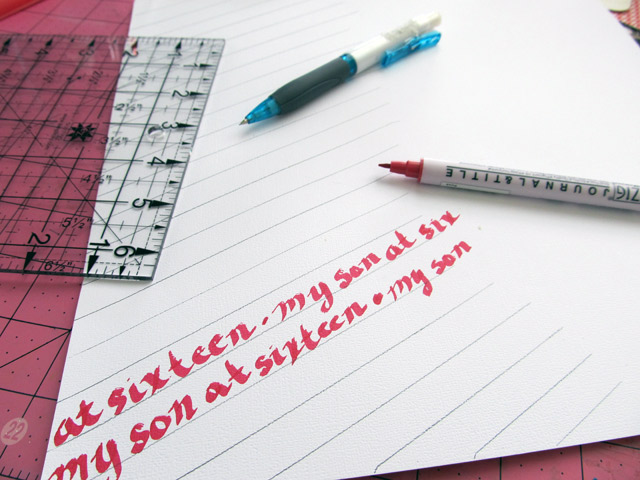 716 JOURNAL & TITLE
at sixteen. my son at six
my son at sixteen. my son
1
2
3
4
5
6
2½
3½
4½
5½
6½
2
1
22